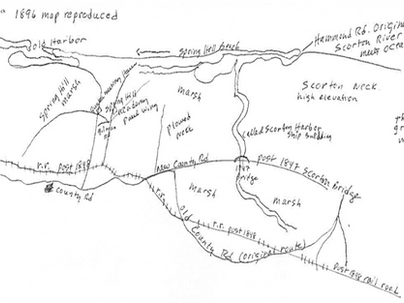 1896 map reproduced
old Harbor
Spring Hill Beach
Hammond Rd. Origin
Scorton River
meets oce
Spring Hill
marsh
Spring Hill
marsh
plowed
neck
Scorton Neck
high elevation
called Scorton Harbor
ship building
r.r. post 1848
County Rd
new County Rd
post 1847 Scorton Bridge
1847
marsh
marsh
r.r.
old
r.r. post 1848
County Rd (original route)
post 1848 rail road